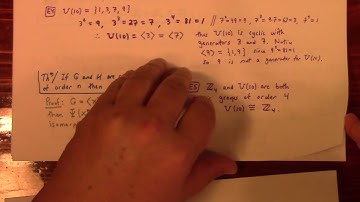 E4 U(10) = {1,3,7,9}
3² = 9, 3³ = 27 = 7, 3⁴ = 81 = 1 // 7² = 49 = 9, 7³ = 9·7 = 63 = 3, 7⁴ = 1
∴ U(10) = ⟨3⟩ = ⟨7⟩ thus U(10) is cyclic with
generators 3 and 7. Notice
⟨9⟩ = {1,9} since 9² = 81 = 1
so 9 is not a generator for U(10).
Th⁽ᵐ⁾/ If G and H are
of order n then
Proof: G = ⟨
then
isomor
E5 ℤ₄ and U(10) are both
groups of order 4
U(10) ≅ ℤ₄.